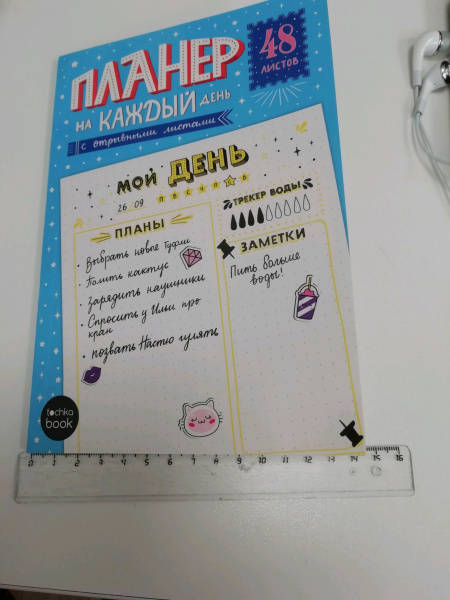 ПЛАНЕР
НА КАЖДЫЙ ДЕНЬ
с отрывными листами
48
ЛИСТОВ
МОЙ ДЕНЬ
26 09
П В С Ч П С В
ПЛАНЫ
• Выбрать новые туфли
• Полить кактус
• Зарядить наушники
• Спросить у Ильи про
кран
• позвать Настю гулять
ТРЕКЕР ВОДЫ
ЗАМЕТКИ
Пить больше
воды!
tochka
book
0 1 2 3 4 5 6 7 8 9 10 11 12 13 14 15 16